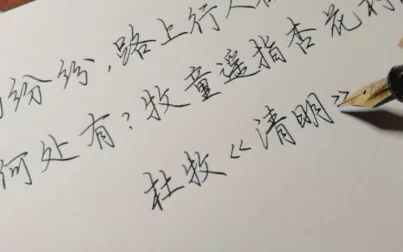 纷纷，路上行人
何处有？牧童遥指杏花
杜牧《清明》